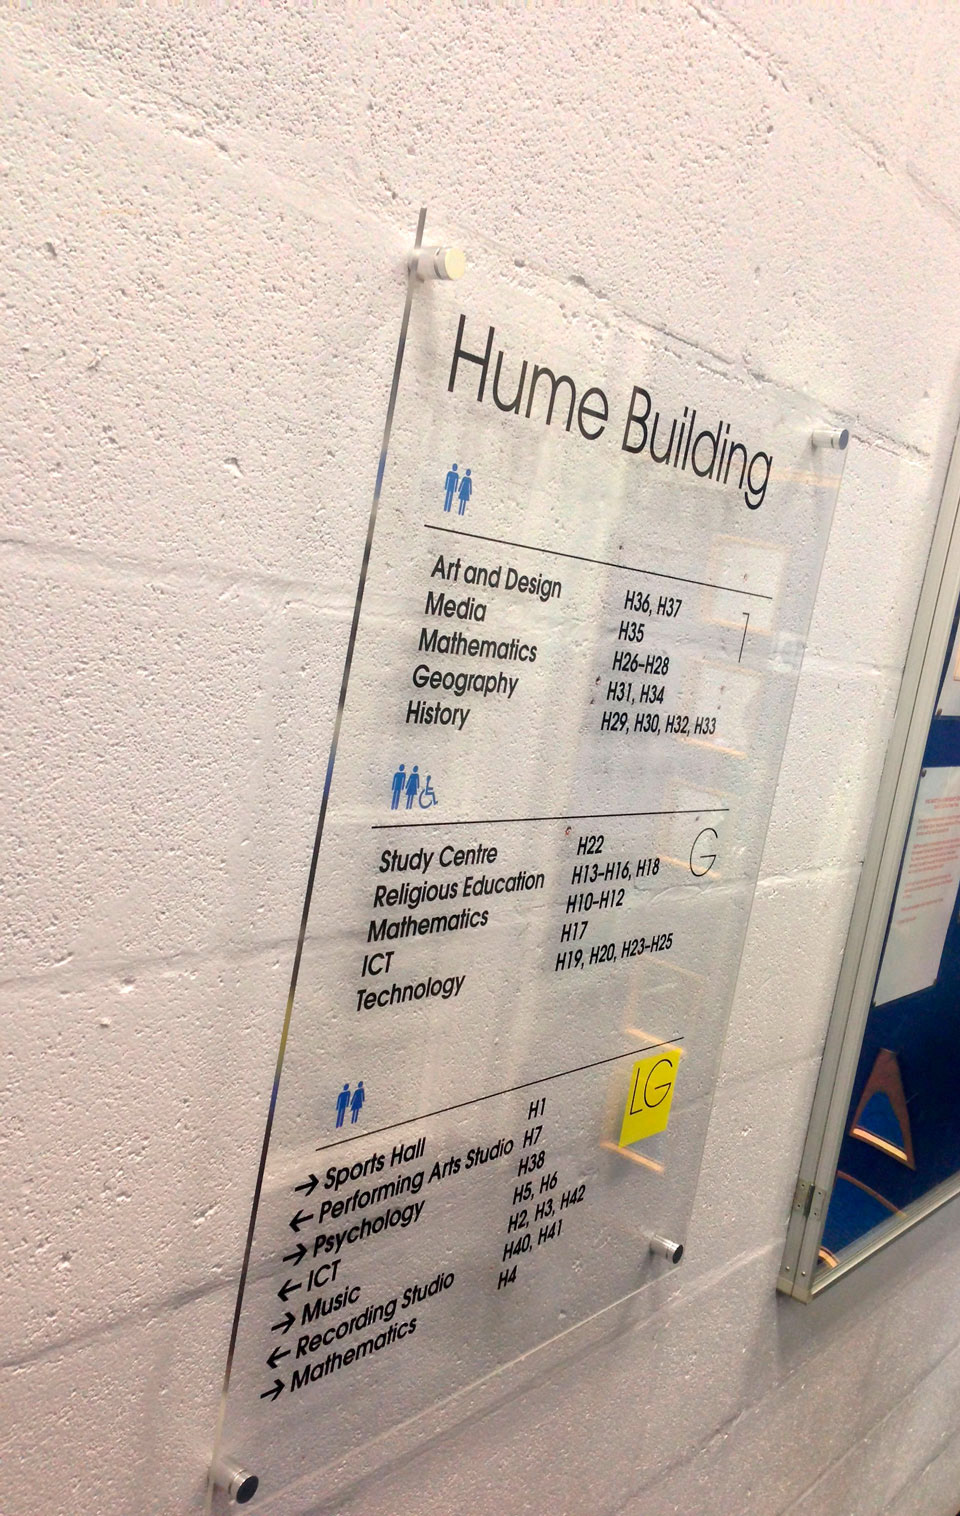 Hume Building
Art and Design H36, H37
Media H35
Mathematics H26-H28
Geography H31, H34
History H29, H30, H32, H33
1
Study Centre H22
Religious Education H13-H16, H18
Mathematics H10-H12
ICT H17
Technology H19, H20, H23-H25
G
LG
→ Sports Hall H1
← Performing Arts Studio H7
→ Psychology H38
← ICT H5, H6
→ Music H2, H3, H42
← Recording Studio H40, H41
→ Mathematics H4